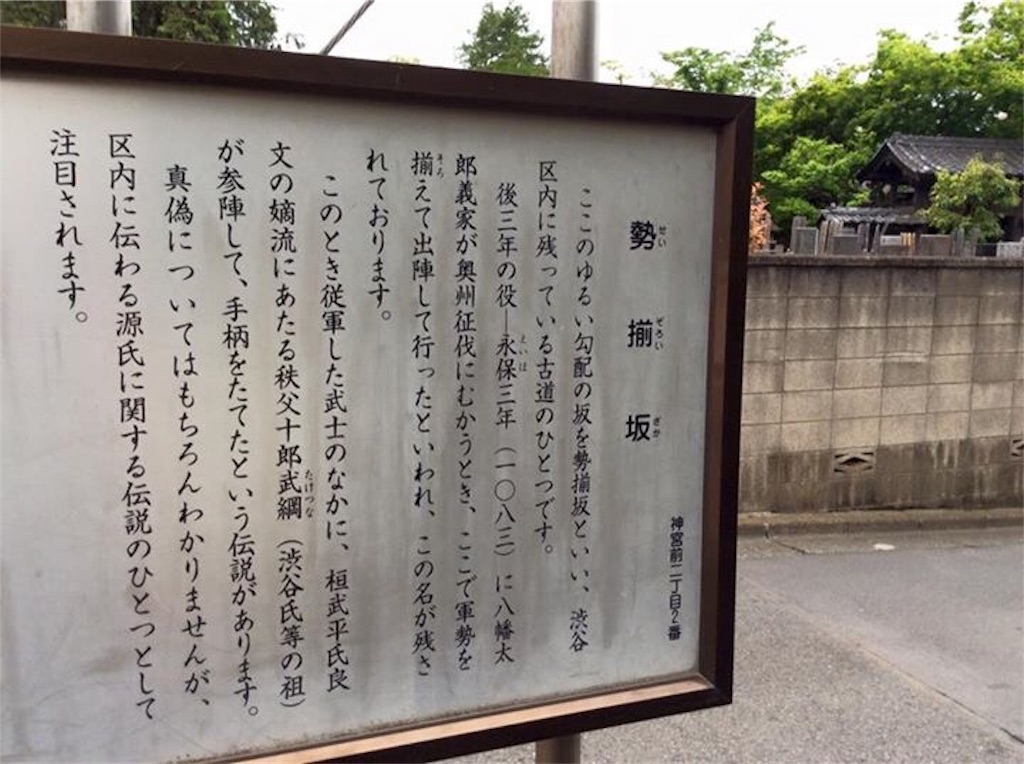 勢揃坂
せいぞろいざか
神宮前二丁目2番
ここのゆるい勾配の坂を勢揃坂といい、渋谷
区内に残っている古道のひとつです。
後三年の役―永保三年（一〇八三）に八幡太
えいほ
郎義家が奥州征伐にむかうとき、ここで軍勢を
揃えて出陣して行ったといわれ、この名が残さ
そろ
れております。
このとき従軍した武士のなかに、桓武平氏良
文の嫡流にあたる秩父十郎武綱（渋谷氏等の祖）
たけつな
が参陣して、手柄をたてたという伝説があります。
真偽についてはもちろんわかりませんが、
区内に伝わる源氏に関する伝説のひとつとして
注目されます。